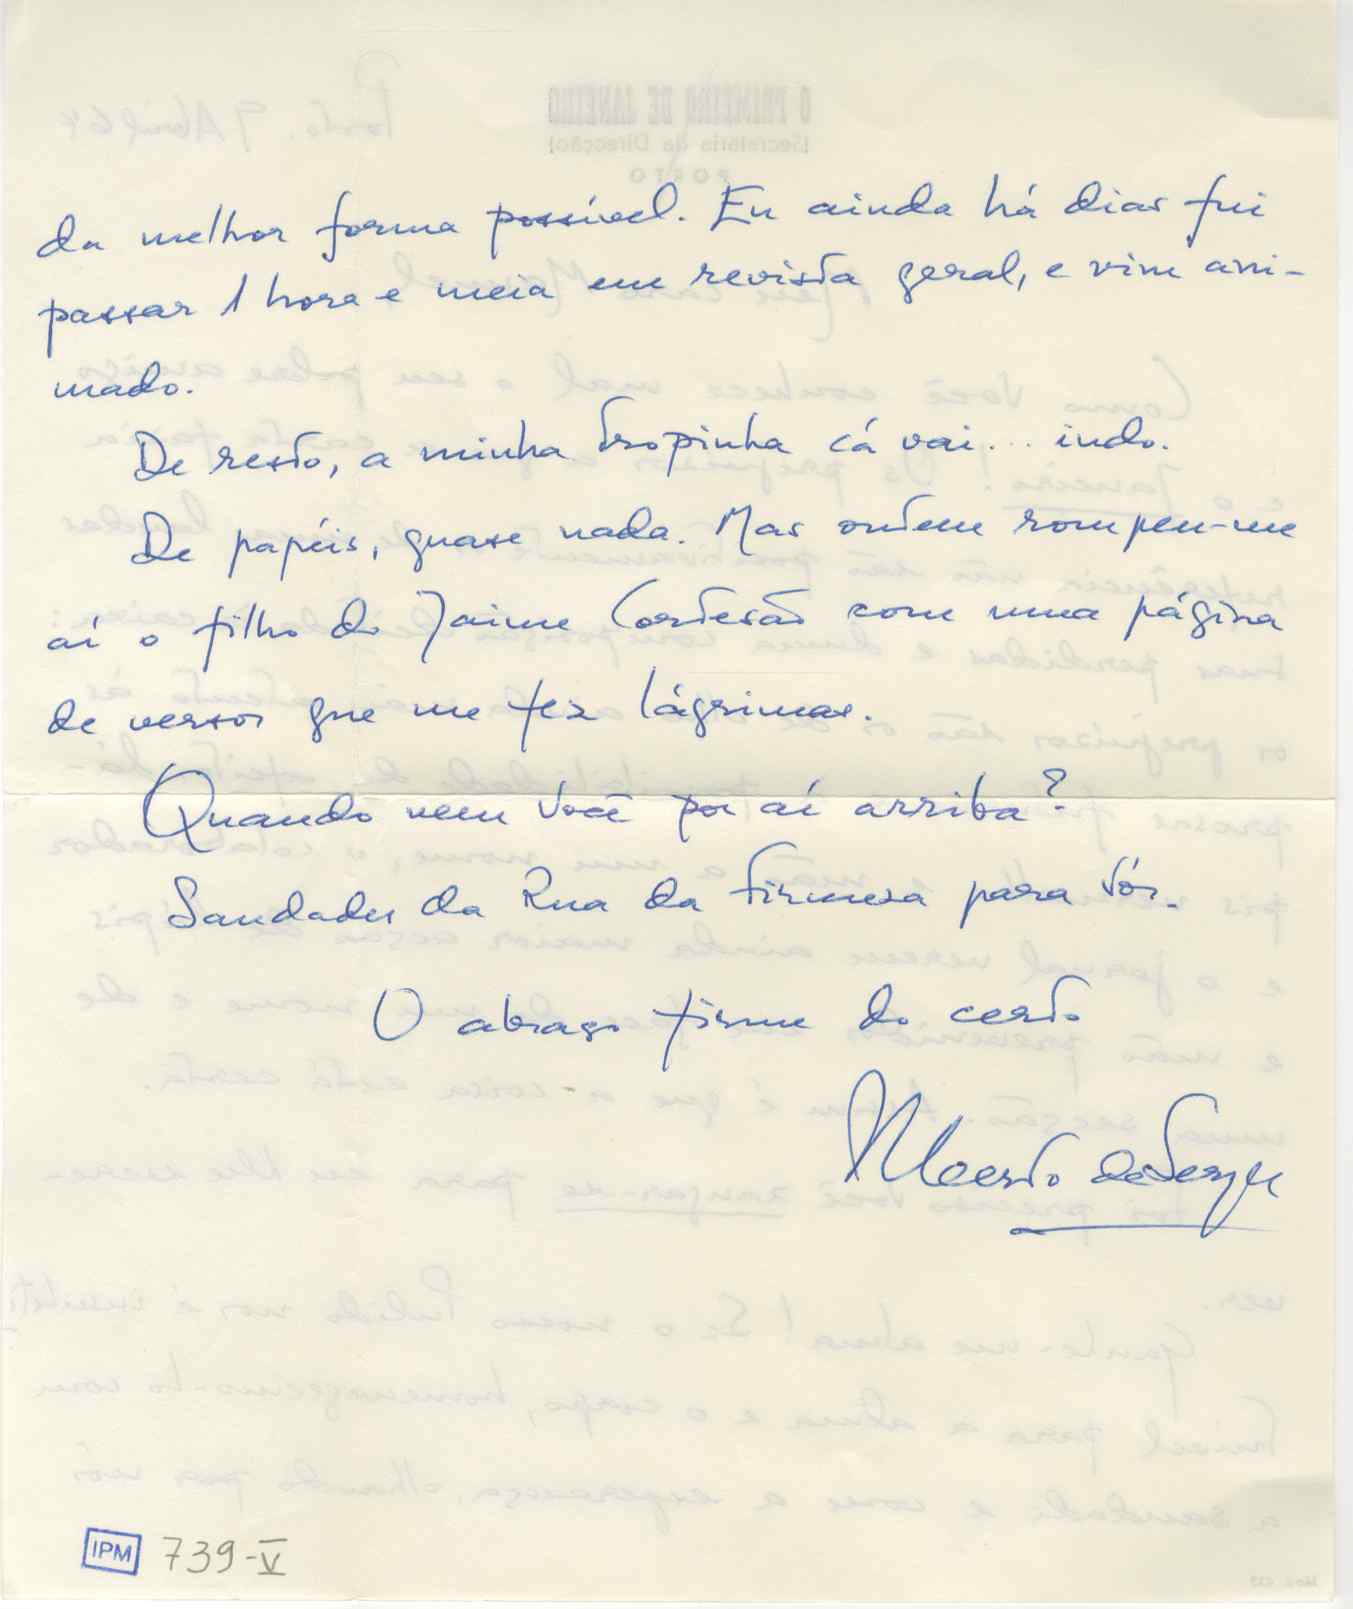 da melhor forma possível. Eu ainda há dias fui
passar 1 hora e meia em revista geral, e vim ani-
mado.
De resto, a minha tropinha cá vai... indo.
De papéis, quase nada. Mas ontem rompeu-me
aí o filho do Jaime Cortesão com uma página
de versos que me fez lágrimas.
Quando vem Você por aí arriba?
Saudades da Rua da Firmeza para Vós.
O abraço firme do certo
Alberto de Serpa
IPM 739-V